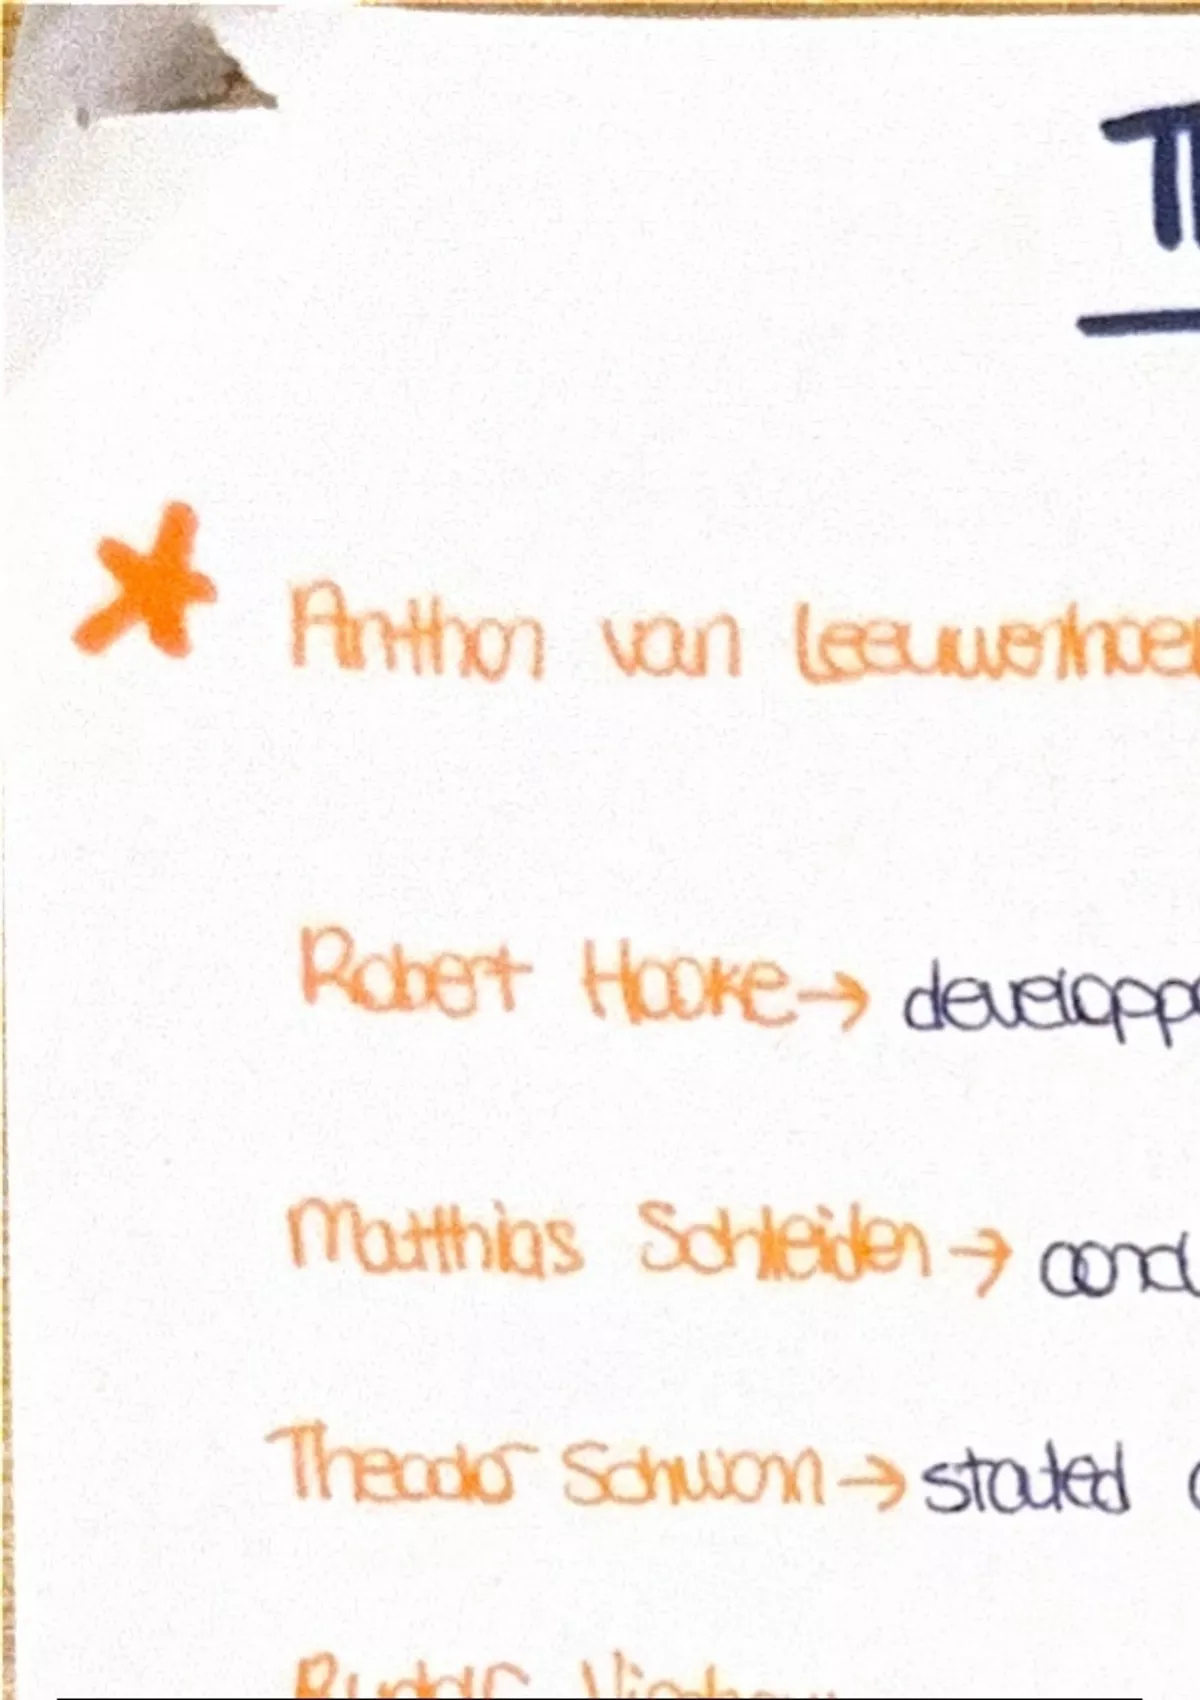 Th
Anthon van Leeuwenhoe
Robert Hooke→ developpe
Matthias Schleiden → conc
Theodor Schwann → stated